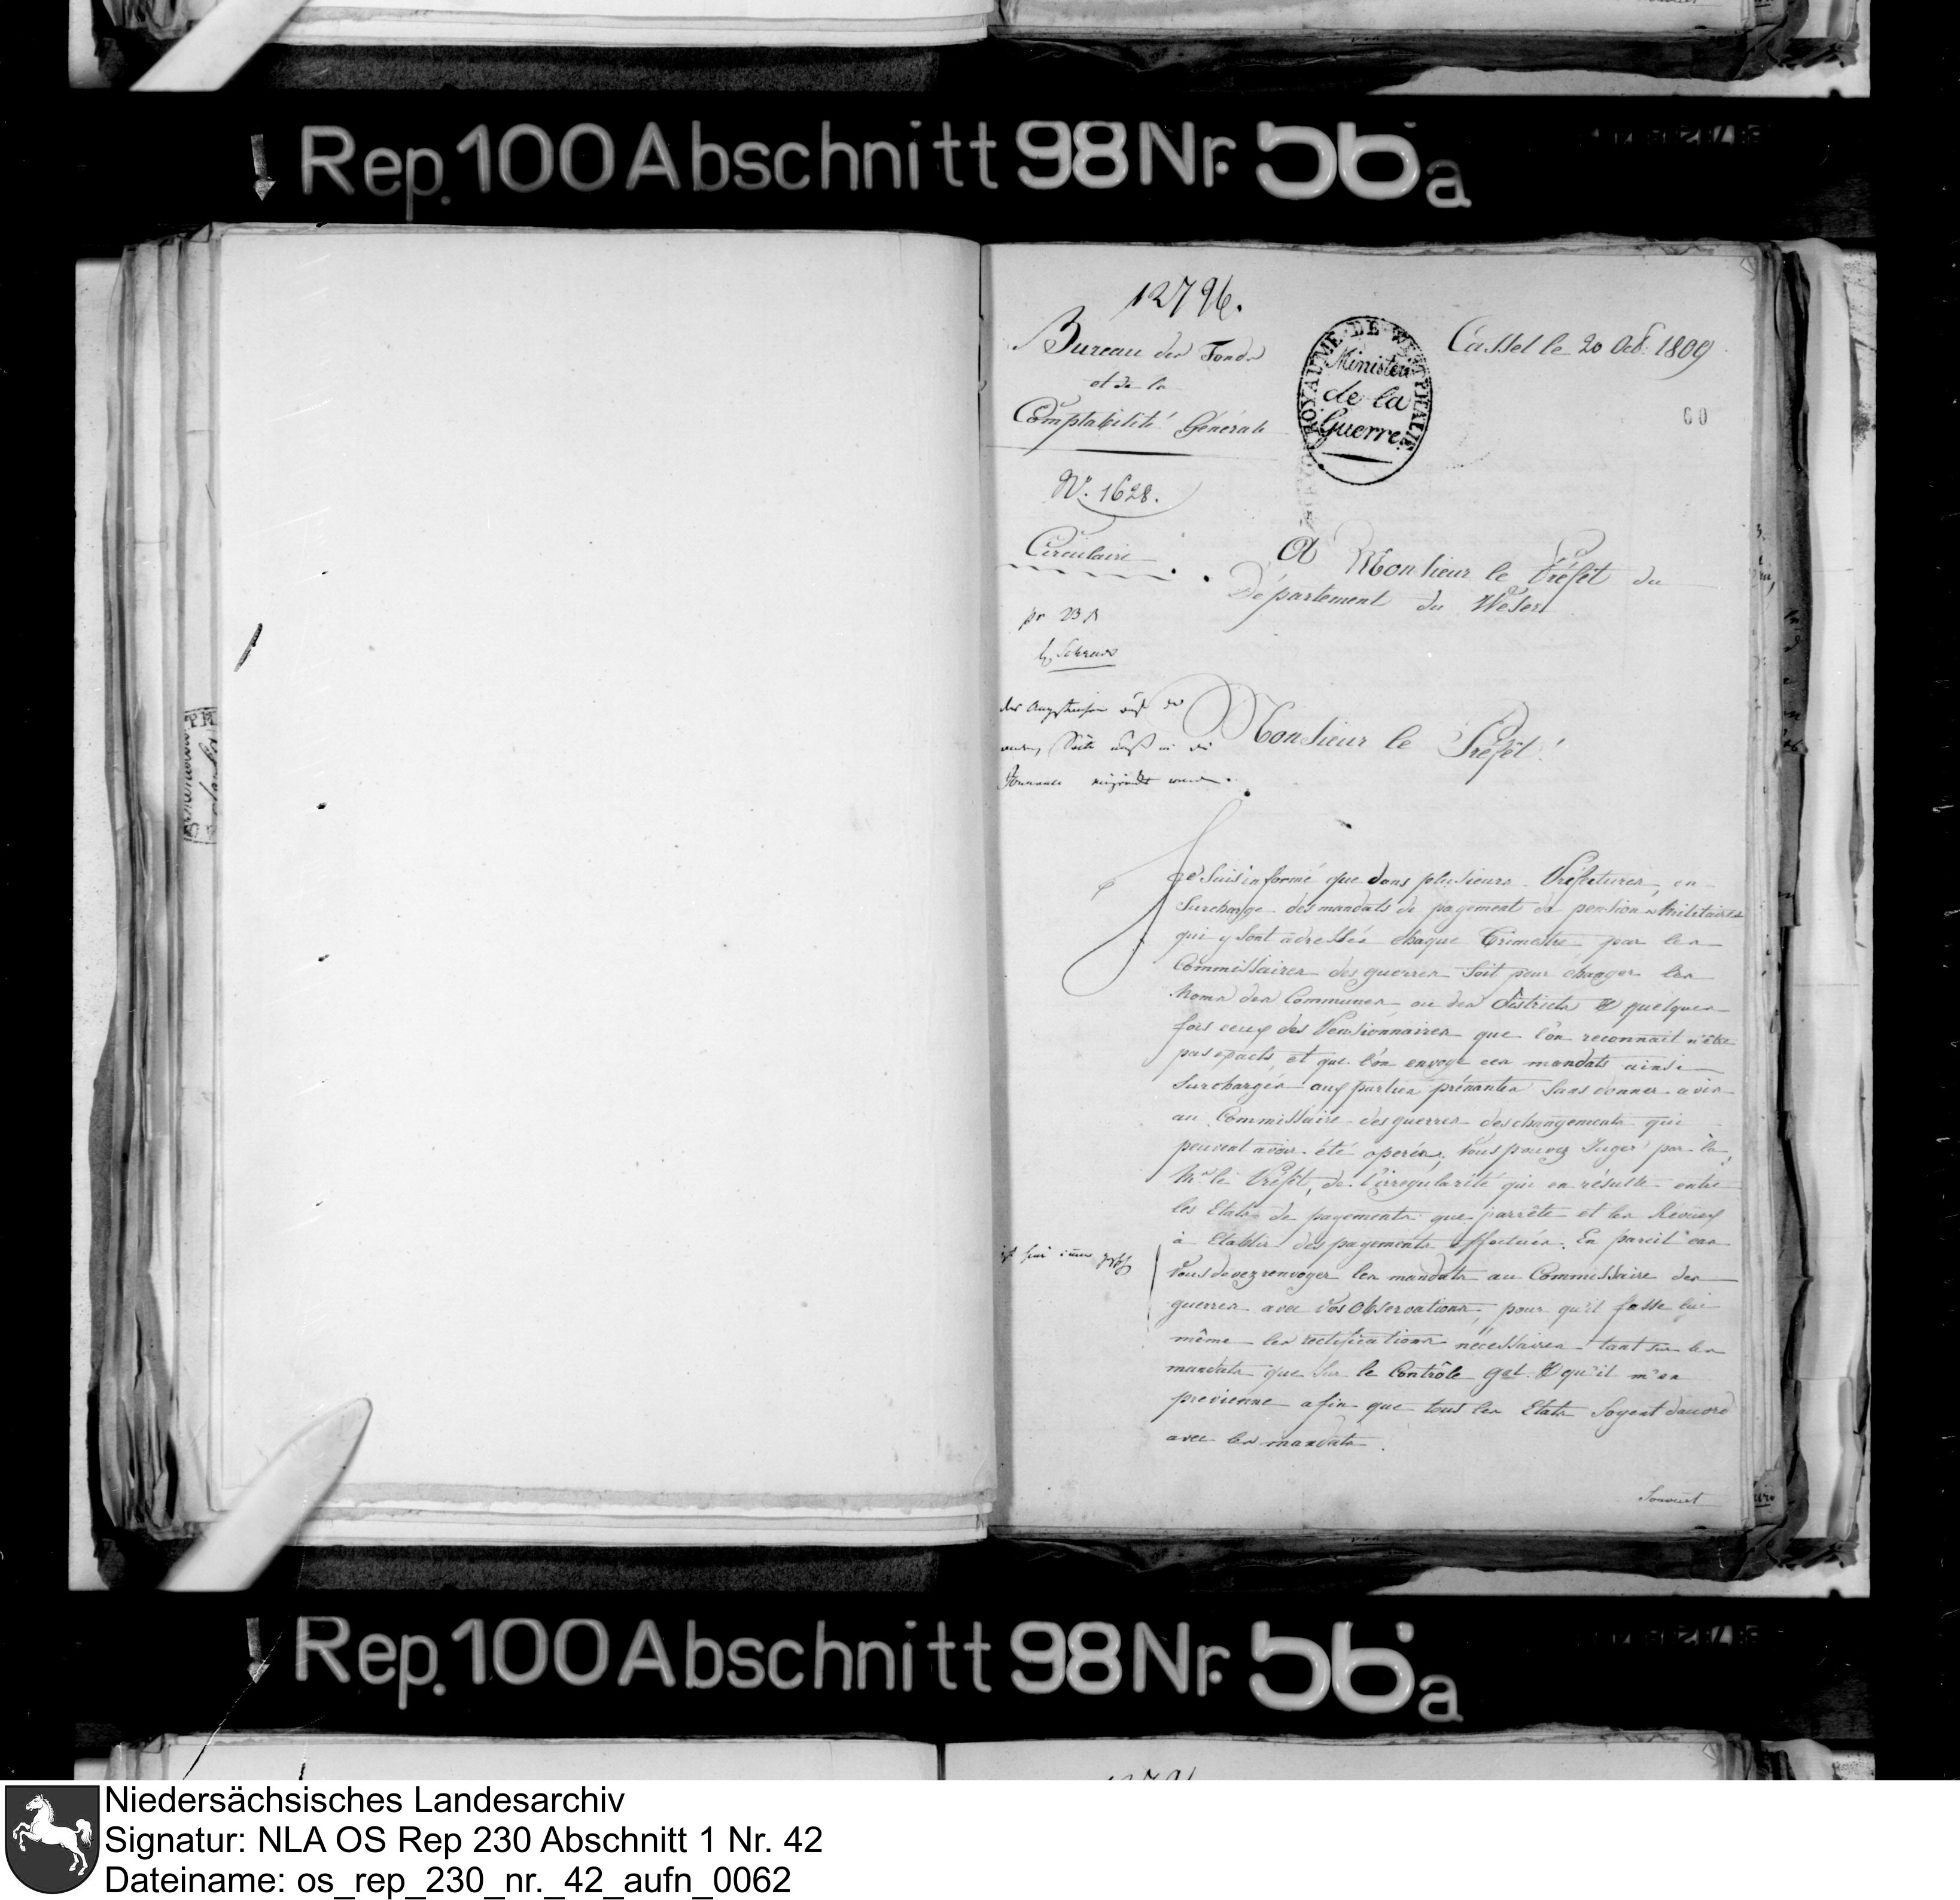 Rep. 100 Abschnitt 98 Nr. 56a
12796.
Bureau des Fonds
et de la
Comptabilité Générale
ROYAUME DE WESTPHALIE
Ministère
de la
Guerre
Cassel le 20 Oct. 1809
60
N. 1628.
Circulaire
A Monsieur le Préfet du
Département du Weser
pr 23
Monsieur le Préfet!
Je suis informé que dans plusieurs Préfectures, on
surcharge des mandats de payement de pensions militaires
qui y sont adressés chaque Trimestre par les
Commissaires des guerres soit pour changer les
noms des Communes ou des Districts & quelques
fois ceux des Pensionnaires que l'on reconnait n'être
pas exacts, et que l'on envoye ces mandats ainsi
surchargés aux parties prénantes sans donner avis
au Commissaire des guerres des changements qui
peuvent avoir été operés; Vous pouvez Juger par là,
Mr. le Préfet, de l'irregularité qui en résulte entre
les Etats de payements que j'arrête et les Revües
à Etablir des payements effectués. En pareil cas
Vous devez renvoyer les mandats au Commissaire des
guerres avec vos Observations, pour qu'il fasse lui
même les rectifications nécessaires tant sur les
mandats que sur le Contrôle gal. & qu'il m'en
previenne afin que tous les Etats soyent d'accord
avec les mandats.
Rep. 100 Abschnitt 98 Nr. 56a
Niedersächsisches Landesarchiv
Signatur: NLA OS Rep 230 Abschnitt 1 Nr. 42
Dateiname: os_rep_230_nr._42_aufn_0062